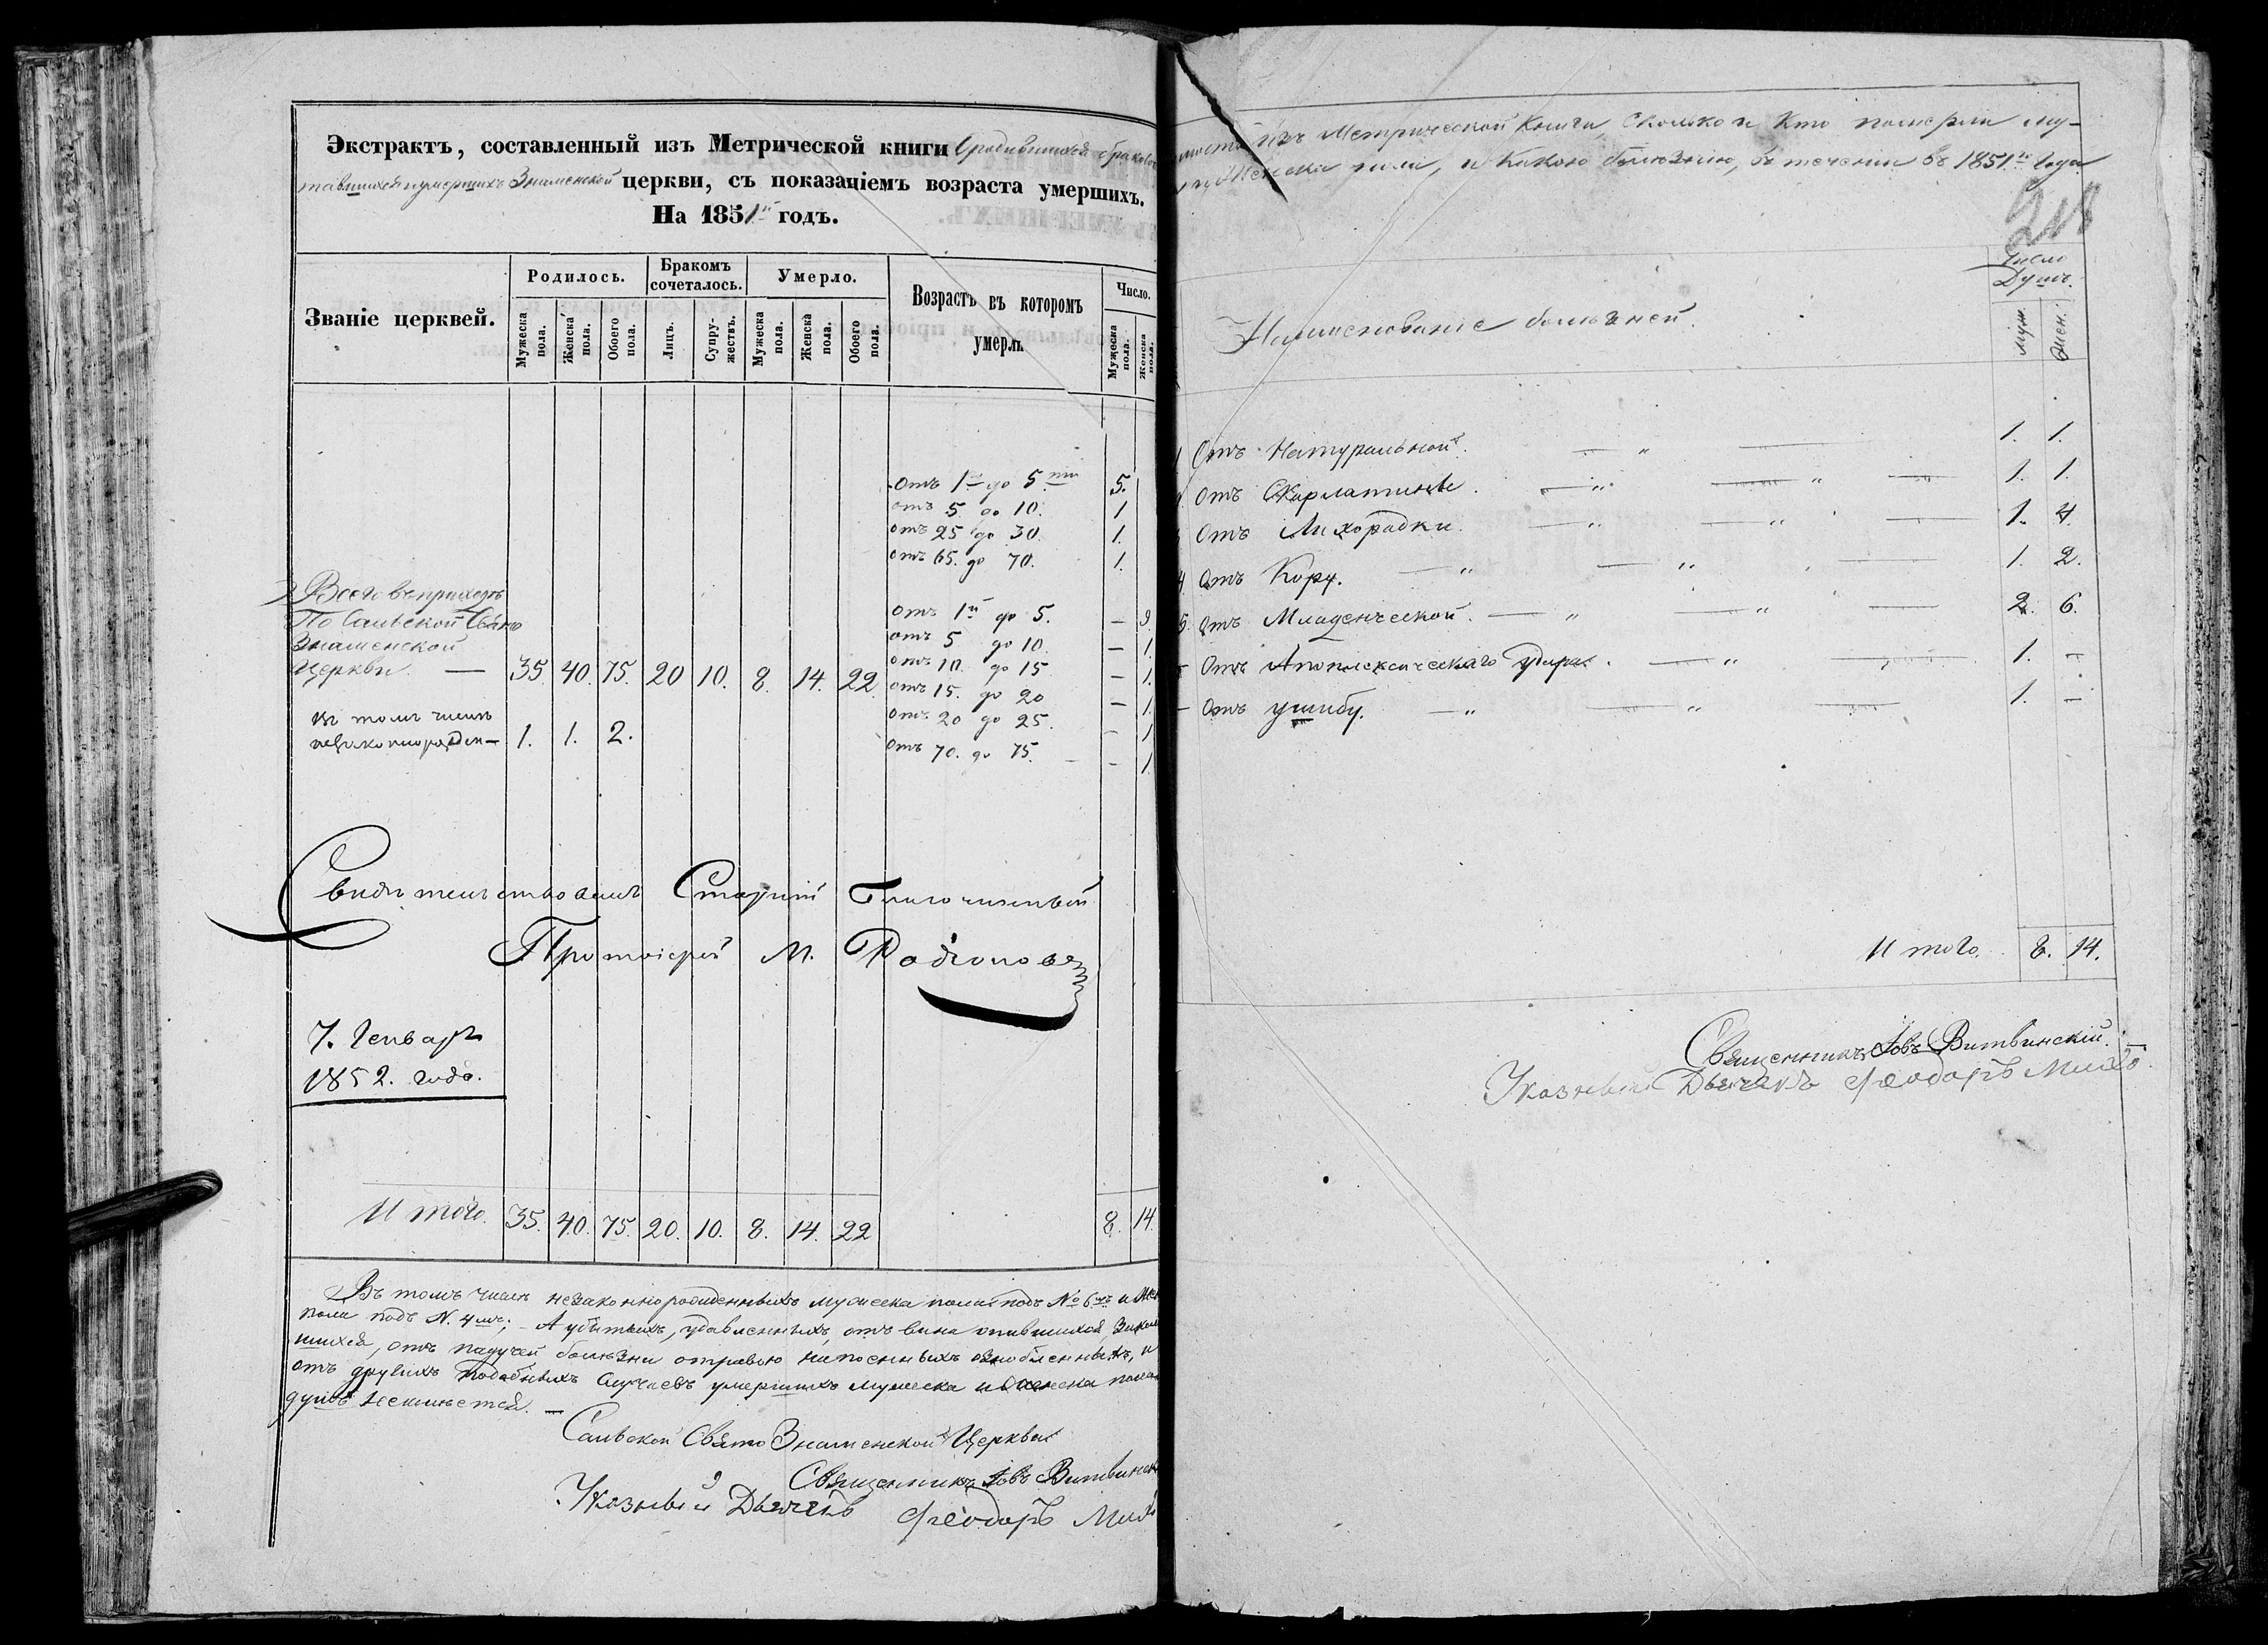 Экстрактъ, составленный изъ Метрической книги о родившихся браком соче
тавшихся и умершихъ Знаменской церкви, съ показаніемъ возраста умершихъ.
На 1851й годъ.
Званіе церквей.
Родилось.
Бракомъ сочеталось.
Умерло.
Возрастъ въ которомъ умерли
Число.
Мужеска пола.
Женска пола.
Обоего пола.
Лицъ.
Супружествъ.
Мужеска пола.
Женска пола.
Обоего пола.
Мужеска пола.
Женска пола.
отъ 1го до 5ти 5.
отъ 5 до 10. 1
отъ 25 до 30. 1.
отъ 65. до 70. 1.
Всего въ приходѣ
По Саивской Свято
Знаменской
Церкви. — 35. 40. 75. 20 10. 8. 14. 22
отъ 1й до 5. — 9.
отъ 5 до 10. — 1.
отъ 10. до 15 — 1.
отъ 15. до 20 — 1.
отъ 20 до 25. — 1
отъ 70. до 75. — 1.
въ томъ числѣ
незаконнорожден— 1. 1. 2.
Свидѣтельствовалъ Старшій Благочинный
Протоіерей М. Родіоновъ
7. Генваря
1852. года.
Итого. 35. 40. 75. 20. 10. 8. 14. 22 8. 14.
Въ томъ числѣ незаконнорожденныхъ мужеска пола подъ № 6мъ и жен
пола подъ N. 4мъ; — А убитыхъ, удавленныхъ, отъ вина опившихся,
шихся, отъ падучей болѣзни отравою
отъ другихъ подобныхъ случаевъ умершихъ мужеска и женска пола
душъ неимѣется. —
Саивской Свято Знаменской Церкви
Священникъ Іовъ Витвинск
Указный Дьячекъ Феодоръ Миха
изъ Метрической Книги, Сколько и Кто померли му-
женска пола, и Какою болѣзнію, въ теченіи въ 1851го года
218
Наименованіе болѣзней.
Число
Душъ.
муж.
жен.
Отъ Натуральной. — „ — 1. 1.
отъ Скарлатины. — „ — „ — 1. 1.
отъ Лихорадки. — „ — „ — 1. 4.
4 отъ Кору. — „ — „ — 1. 2.
5. отъ Младенческой. — „ — „ — 2. 6.
— отъ Апоплексическаго удара. — „ — 1. —
— отъ ушибу. — „ — „ — 1. —
Итого. 8. 14.
Священникъ Іовъ Витвинскій. —
Указный Дьячекъ Феодоръ